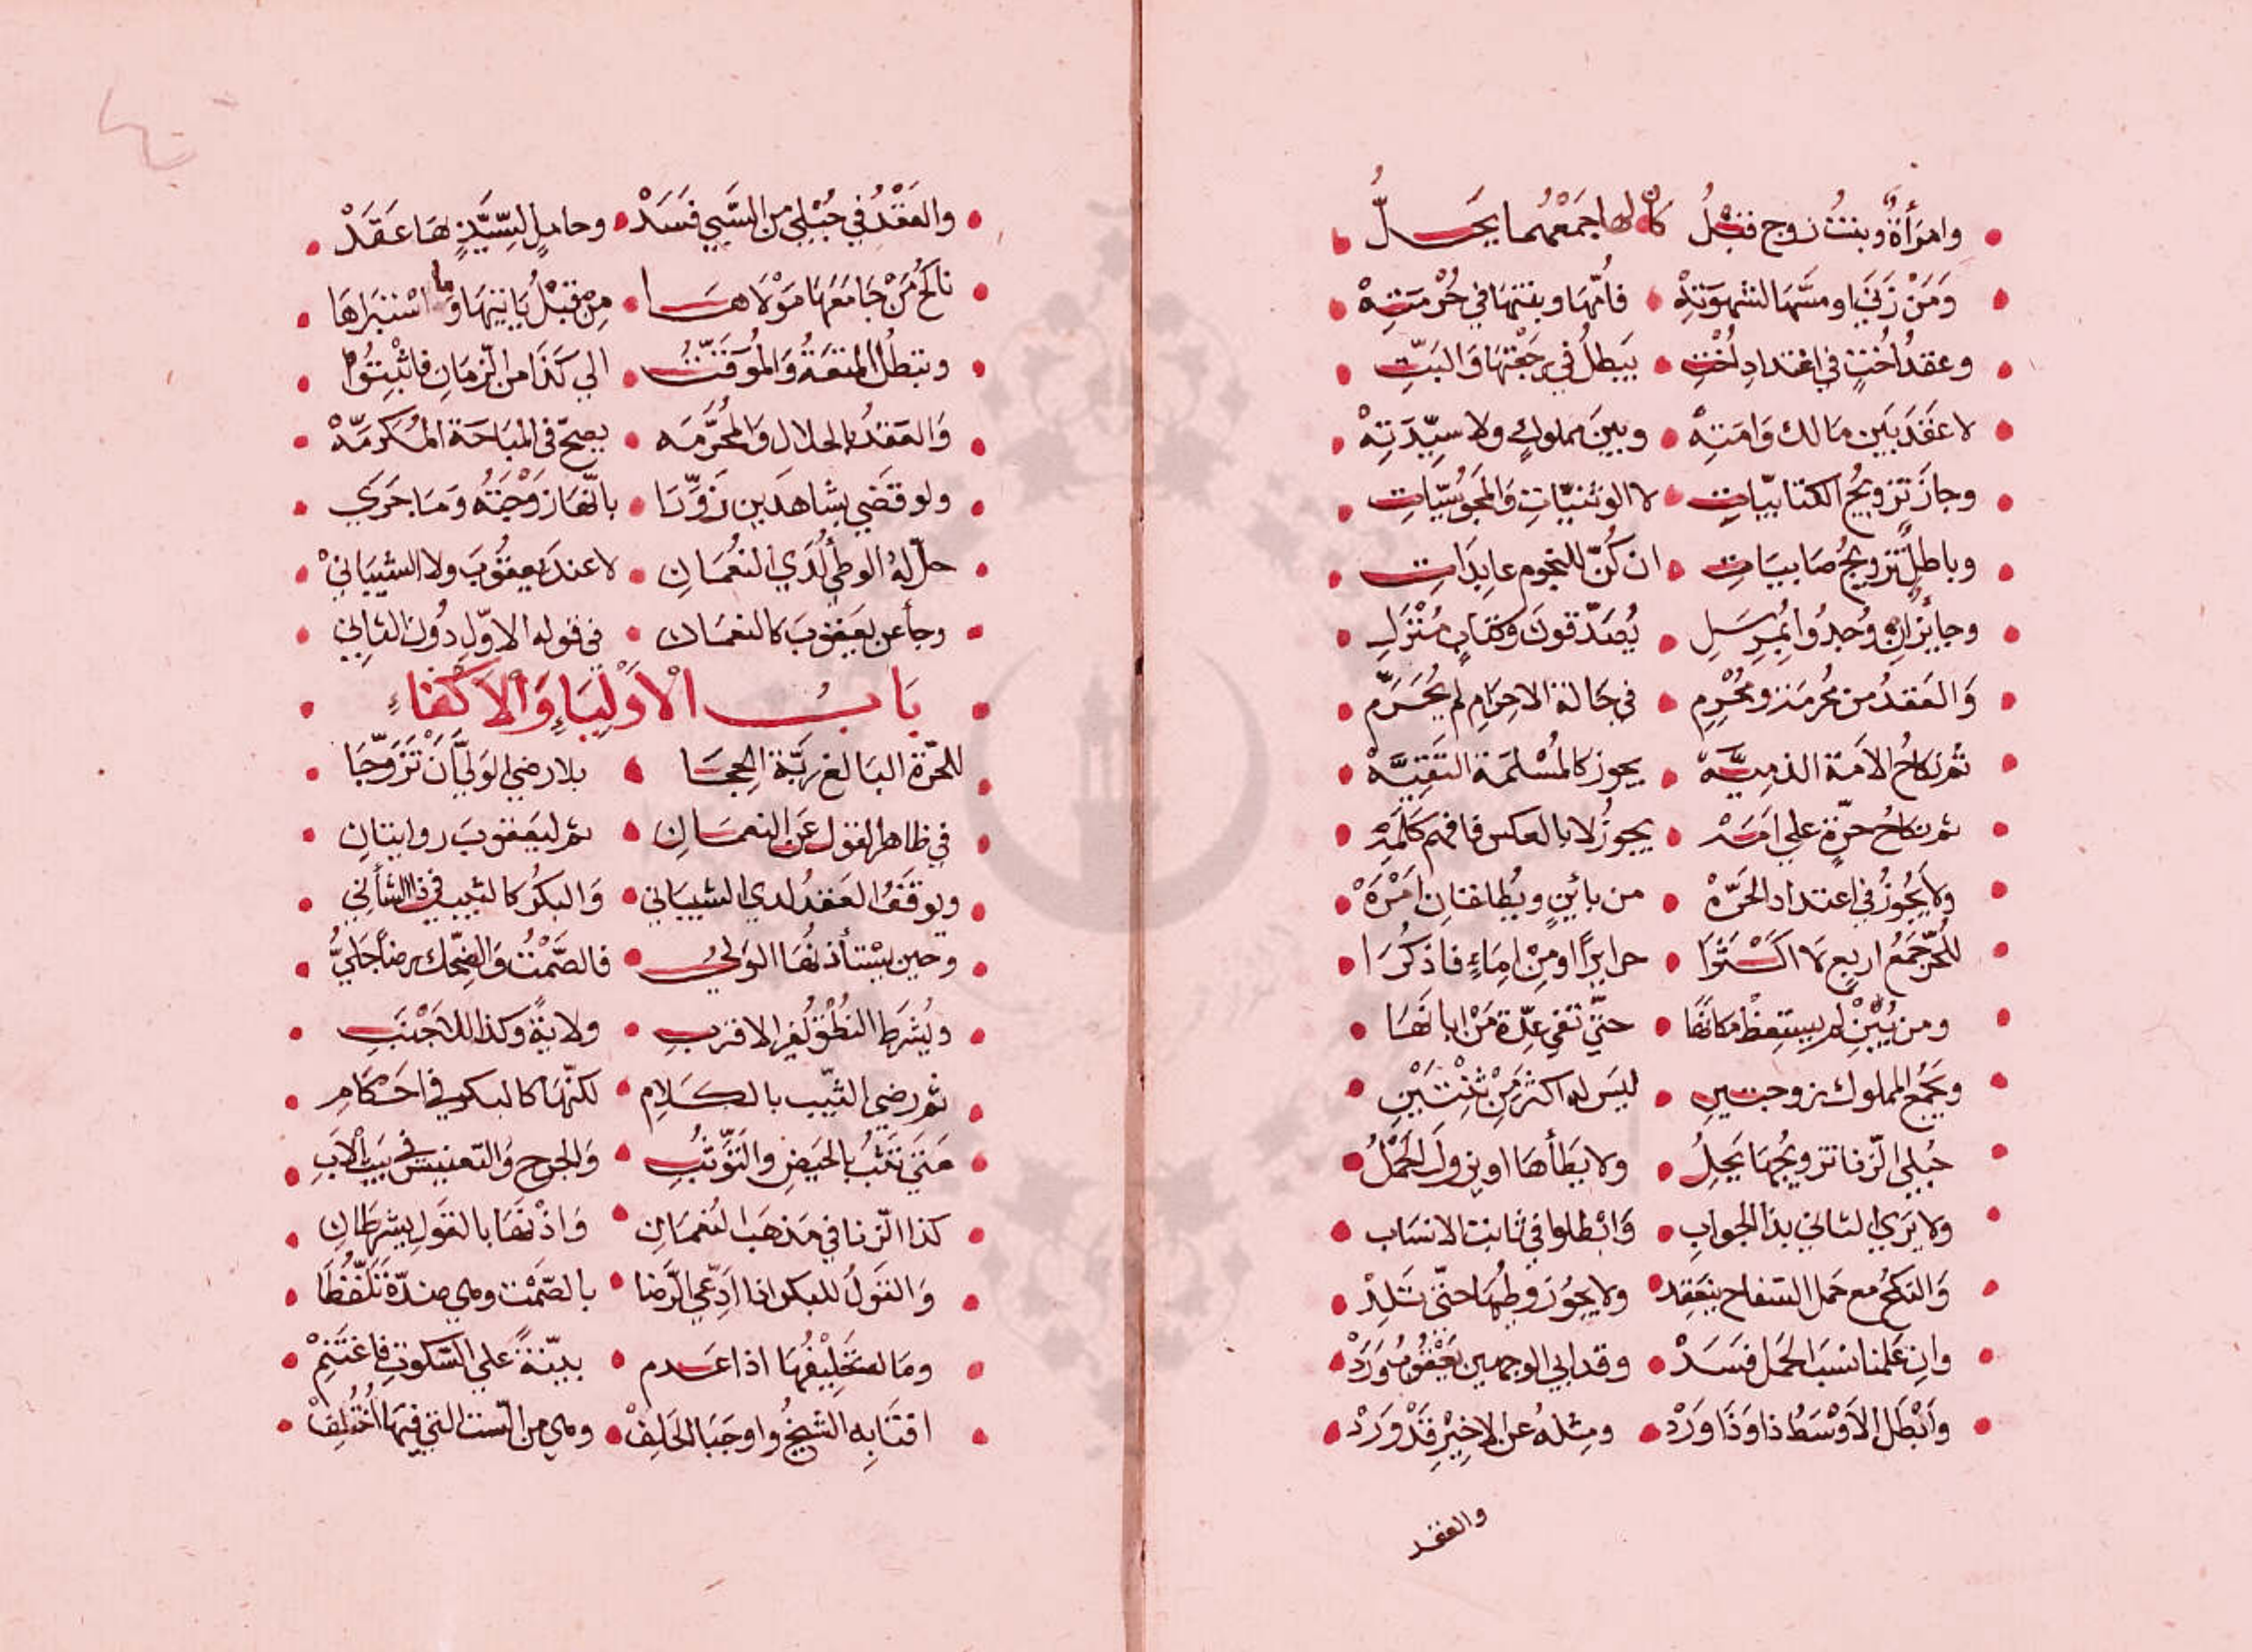 وامرَأةٌ وبنتُ زوج قبْلُ كان لها جمْعُهُما يحَلُّ
وَمَنْ زَنَي او مسَّها لشهوَتِهْ فأمّها وبنتها في حُرْمتِهْ
وعقدُ اُختٍ في اعتدادِ اُختِ يَبطلُ في رجعْتهَا وَالبَتِّ
لا عقدَ بَين مَالك وَامَتِهْ وبينَ مملوكٍ ولا سيِّدَتِهْ
وجازَ تزويجُ الكتابيّاتِ لا الوثنيّاتِ وَالمجُوسيّاتِ
وباطلٌ تزويجُ صَابيَاتِ ان كُنّ للنجوم عابِدَاتِ
وجايزٌ ان وُجدُوا بمُرسَلِ يُصَدّقونَ وكتابٍ مُنْزَلِ
وَالعَقدُ من مُحرمَةٍ ومُحْرِمِ في حَالة الاحرَامِ لم يُحَرَّمِ
ثم نكاحُ الاَمَة الذميَّهْ يجوز كالمُسْلمَة التَقيَّهْ
ثم نكاحُ حرّةٍ علي امَهْ يجوزُ لا بالعكس فافهم كلَمَهْ
ولاَ يَجُوزُ في اعتداد الحَرّهْ من بائنٍ ويُطلقانِ اَمْرَهْ
للحُرِّ جَمْعُ اربعٍ لا اكْثَرَا حرايرًا او مِنْ اِمَاءٍ فاذكُرَا
ومن يُبِنْ لم يستعِضْ مكانَهَا حتّي تقي عِدّة مَنْ ابانَهَا
ويَجْمَعُ المملوك زوجتينِ ليسَ له اكثرُ مِنْ ثِنْتَيْنِ
حُبلي الزّنا تزويجُهَا يَحِلُ ولا يَطَأهَا او يزولَ الحَمْلُ
ولا يَرَي الثاني بذا الجوابِ وَابْطلوا في ثابت الانسَاب
وَالنكحُ مع حَمل السّفاح ينعَقِد ولا يجُوزُ وطيهَا حتّي تَلِدْ
وان عَلمنا نسبَ الحَمل فسَدْ وقد ابي الوجهين يَعْقُوبُ وَرَدْ
وَاَبْطَلَ الاَوْسَطُ ذا وَذَا وَرَدْ ومِثلهُ عن الاخِيْرِ قَدْ وَرَدْ
والعقد
والعَقْدُ في حُبْلي من السَّبي فسَدْ وحاملٍ لسَيّدٍ لهَا عقَدْ
ناكحُ مَنْ جَامَعَهَا مَوْلاَهَا مِنْ قبْلُ يَاتيهَا وما اسْتَبرَاهَا
وتبطلُ المتعَةُ وَالمُوَقَّتُ الي كَذَا من الزمَانِ فاثْبتُوا
وَالعَقدُ بالحلال وَالمحُرَّمَه يصحّ في المبَاحَة المُكرمَّهْ
ولو قضَي بشاهدَين زَوَّرَا بانّهَا زوْجَتُه وَمَا جَرَي
حلّ له الوطي لَدَي النعُمَانِ لا عندَ يعقُوبَ ولا الشيبَانيْ
وجَأ عن يَعقوبَ كالنعمَان في قوله الاوّل دُونَ الثاني
بَابُ الْأوْليَاءِ وَالْأكْفَاءِ
للحُرّة البَالغ رَبّة الحِجَا بلا رضي الوَليّ أَنْ تَزَوَّجَا
في ظاهر القول عَن النعمَانِ ثم ليعقوبَ روايتانِ
ويوقَفُ العَقدُ لدي الشيبَاني وَالبكرُ كالثيب في ذا الشأنِ
وحين يسْتأذنُهَا الوَليُ فالصَّمْتُ وَالضحْك رضًا جَليُّ
ويُشرَط النطْقُ لغير الاقربِ ولايةً وكذا للاَجْنَبِ
ثم رضي الثيّب بالكَلامِ لكنّهَا كالبكر في احكَامِ
مَتَي تثبُ بالحيضِ والتَوَثّبُ وَالجرح وَالتعنيس في بَيت الاَبِ
كذا الزنا في مَذهَب النُعمَانِ وَاذْنهَا بالقَولِ يشرطانِ
وَالقَولُ للبكر اذا ادّعي الرّضا بالصّمْت وهي ضدّهُ تلَفّظَا
ومَا له تحَلِيْفُهَا اذا عَدم بيّنَةً علي السّكوتِ فاغتَنِمْ
افتَا به الشيخُ واوجَبَا الحَلِفْ وهي من الست التي فيهَا اُخْتُلِفْ